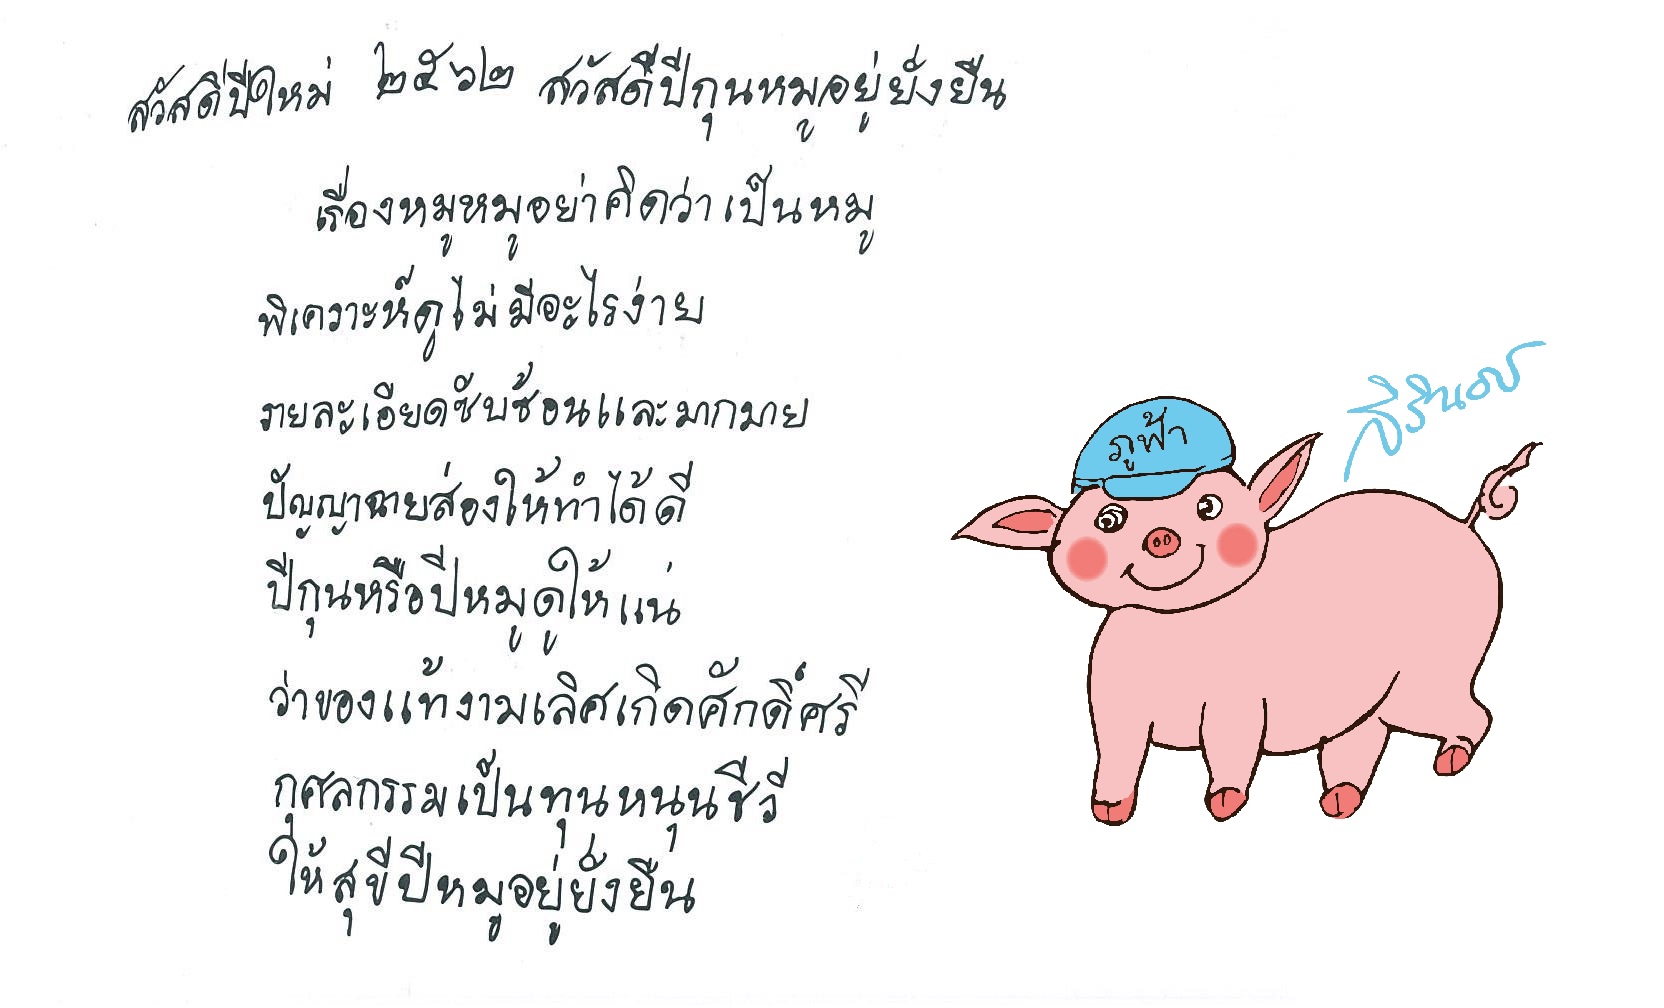 สวัสดีปีใหม่ ๒๕๖๒ สวัสดีปีกุนหมูอยู่ยั่งยืน
เรื่องหมูหมูอย่าคิดว่าเป็นหมู
พิเคราะห์ดูไม่มีอะไรง่าย
รายละเอียดซับซ้อนและมากมาย
ปัญญาฉายส่องให้ทำได้ดี
ปีกุนหรือปีหมูดูให้แน่
ว่าของแท้งามเลิศเกิดศักดิ์ศรี
กุศลกรรมเป็นทุนหนุนชีวี
ให้สุขีปีหมูอยู่ยั่งยืน
สิรินธร
ภูฟ้า